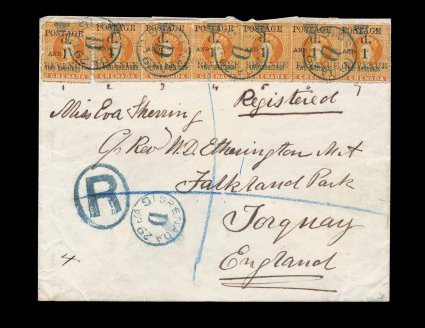 POSTAGE POSTAGE POSTAGE POSTAGE POSTAGE POSTAGE POSTAGE
d. d. d. d. d. d. d.
AND 1 AND 1 AND 1 AND 1 AND 1 AND 1 AND 1
REVENUE REVENUE REVENUE REVENUE REVENUE REVENUE REVENUE
GRENADA GRENADA GRENADA GRENADA GRENADA GRENADA GRENADA
1 2 3 4 5 6 7
Registered
Miss Eva Sherring
c/o Rev W.D. Etherington M.A
Falkland Park
Torquay
England
R
GRENADA
D
4